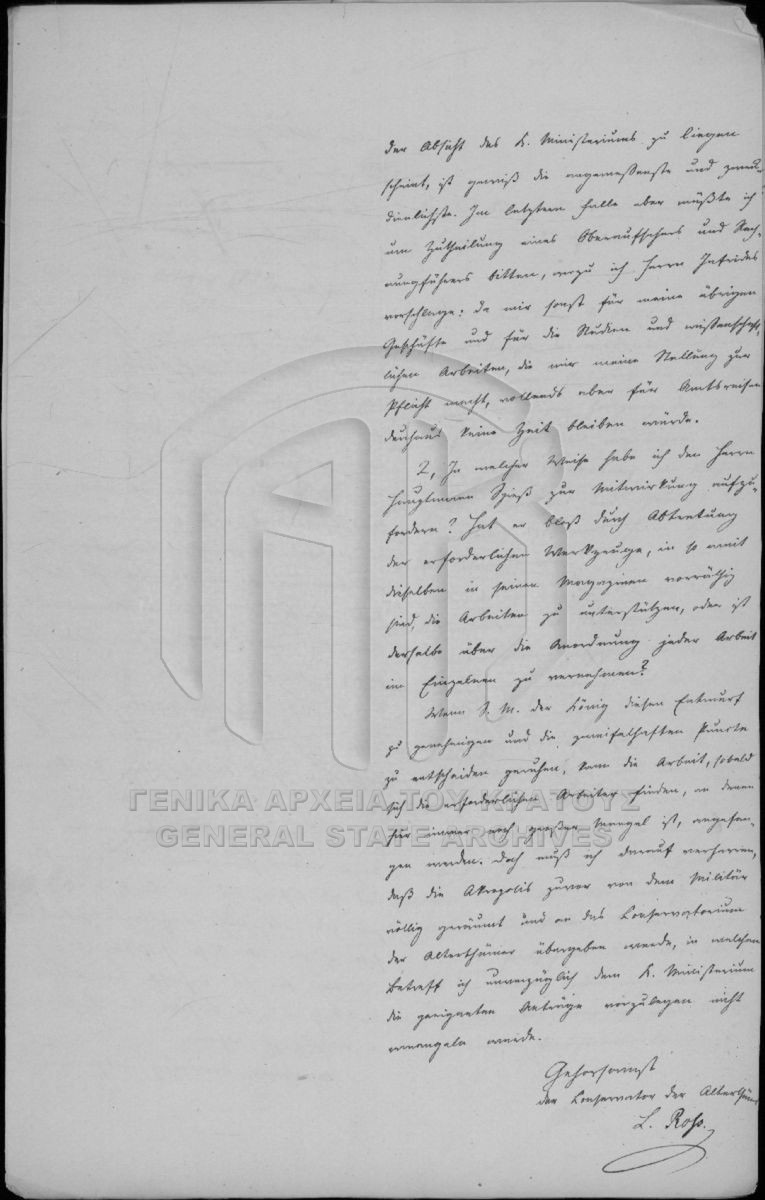 der Absicht des K. Ministeriums zu liegen
scheint, ist gewiß die angemessenste und zweck-
dienlichste. Im letztern Falle aber müßte ich
um Zutheilung eines Oberaufsehers und Rech-
nungsführers bitten, wozu ich Herrn
vorschlage: da mir sonst für meine übrigen
Geschäfte und für die Studien und wissenschaft-
lichen Arbeiten, die mir meine Stellung zur
Pflicht macht, vollends aber für Amtsreisen
durchaus keine Zeit bleiben würde.
2, In welcher Weise habe ich den Herrn
Hauptmann Spieß zur Mitwirkung aufzu-
fordern? Hat er bloß durch Abtretung
der erforderlichen Werkzeuge, in so weit
dieselben in seinen Magazinen vorräthig
sind, die Arbeiten zu unterstützen, oder ist
derselbe über die Anordnung jeder Arbeit
im Einzelnen zu vernehmen?
Wenn S. M. der König diesen Entwurf
zu genehmigen und die zweifelhaften Puncte
zu entscheiden geruhen, kann die Arbeit, sobald
sich die erforderlichen Arbeiter finden, an denen
hier immer noch großer Mangel ist, angefan-
gen werden. Doch muß ich darauf verharren,
daß die Akropolis zuvor von dem Militär
völlig geräumt und an das Conservatorium
der Alterthümer übergeben werde, in welchem
Betreff ich unverzüglich dem K. Ministerium
die geeigneten Anträge vorzulegen nicht
ermangeln werde.
Gehorsamst
der Conservator der Alterthüm
L. Ross.
ΓΕΝΙΚΑ ΑΡΧΕΙΑ ΤΟΥ ΚΡΑΤΟΥΣ
GENERAL STATE ARCHIVES